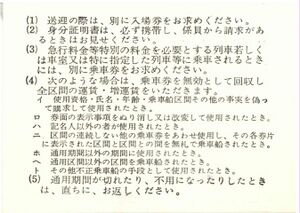 (1) 送迎の際は、別に入場券をお求めください。
(2) 身分証明書は、必ず携帯し、係員から請求があ
るときはお見せください。
(3) 急行料金等特別の料金を必要とする列車若しく
は車室又は特に指定した列車等に乗車されるとき
には、別に乗車券をお求めください。
(4) 次のような場合は、乗車券を無効として回収し
全区間の運賃・増運賃をいただきます。
イ 使用資格・氏名・年齢・乗車船区間その他の事実を偽っ
て購求して使用されたとき。
ロ 券面の表示事項をぬり消し又は改変して使用されたとき。
ハ 記名人以外の者が使用したとき。
ニ 区間の連続しない他の乗車券をあわせ使用し、その各券片
に表示された区間と区間との間を無札で乗車船されたとき。
ホ 通用期間以外の期間に使用されたとき。
ヘ 通用区間以外の区間を乗車船されたとき。
ト その他不正乗車船の手段として使用されたとき。
(5) 通用期間が切れたり、不用になったりしたとき
は、直ちに、お返しください。